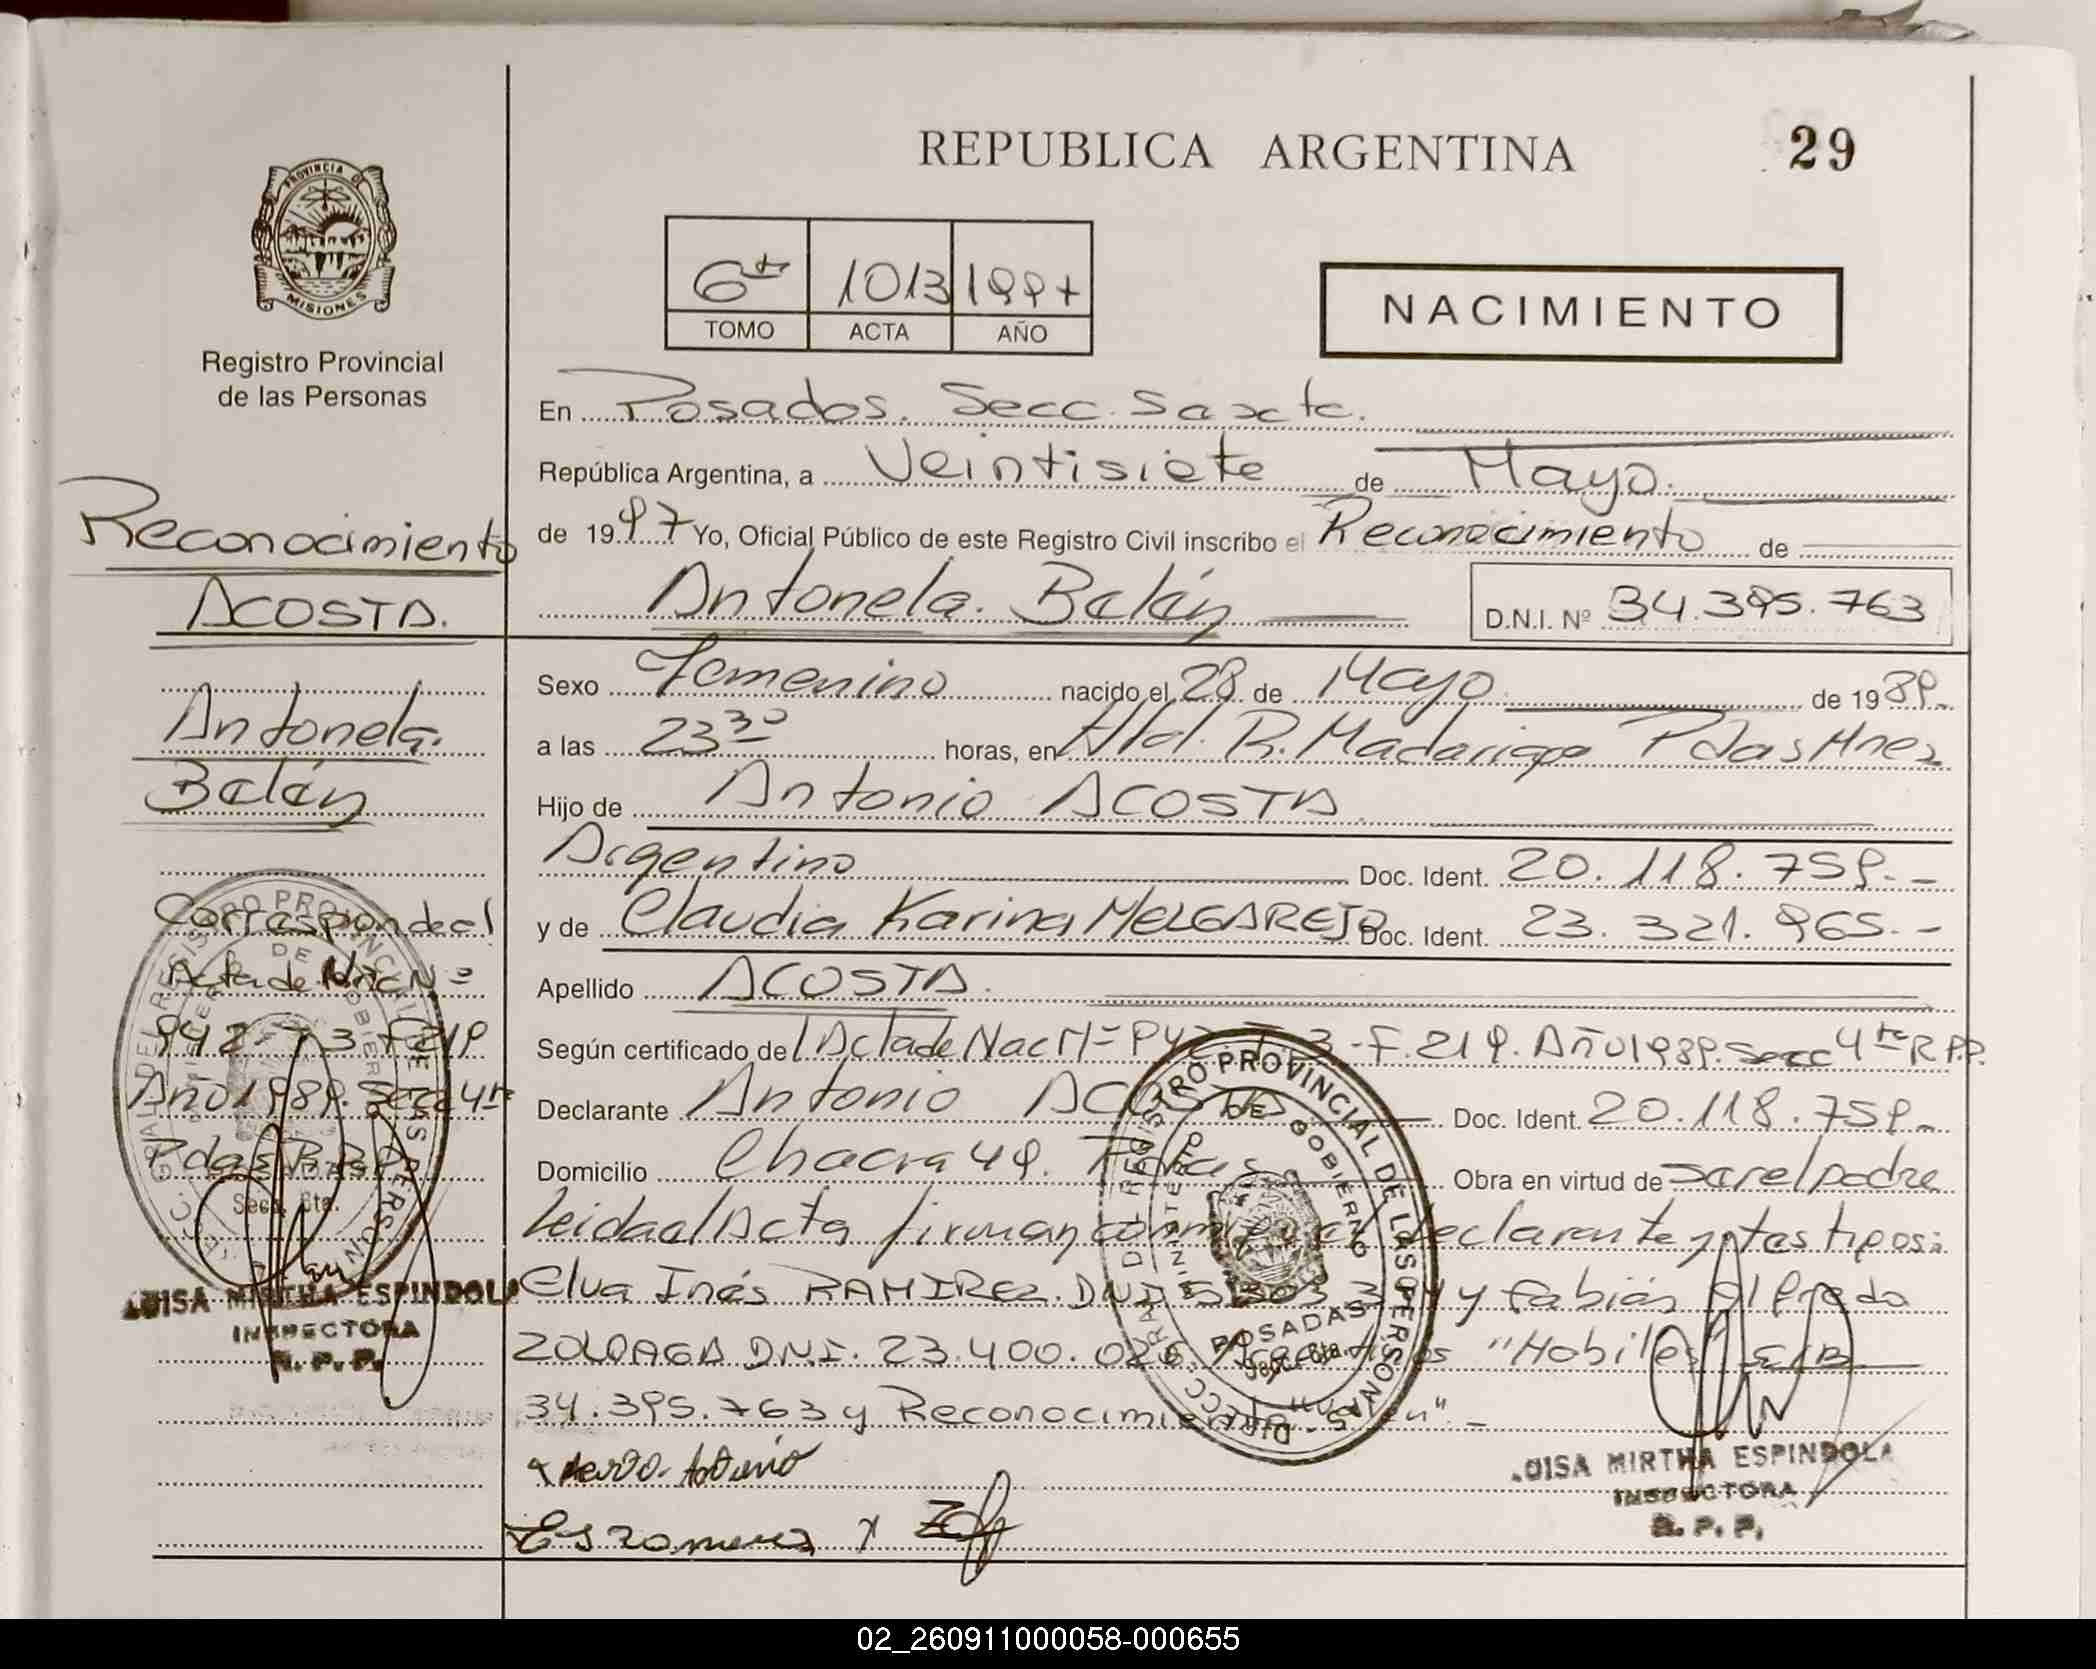 REPUBLICA ARGENTINA
29
PROVINCIA DE
MISIONES
Registro Provincial
de las Personas
6ta 1013 1997
TOMO ACTA AÑO
NACIMIENTO
En Posadas. Secc. Sexta.
República Argentina, a Veintisiete de Mayo.
de 1997 Yo, Oficial Público de este Registro Civil inscribo el Reconocimiento de
Antonela. Belén
D.N.I. Nº 34.395.763
Sexo Femenino nacido el 28 de Mayo de 1989.
a las 23 30 horas, en Htal. R. Madariaga Pdas Mnes
Hijo de Antonio ACOSTA
Argentino Doc. Ident. 20.118.759.-
y de Claudia Karina MELGAREJO Doc. Ident. 23.321.965.-
Apellido ACOSTA.
Según certificado del Acta de Nac Nº 942 T 3 - F. 219. Año 1989. Secc 4ta R.P.P.
Declarante Antonio ACOSTA Doc. Ident. 20.118.759.-
Domicilio Chacra 49. Pdas. Obra en virtud de ser el padre
Leida el Acta firman conmigo el declarante y testigos:
Elva Inés RAMIREZ. DNI y Fabián Alfredo
ZOLOAGA DNI. 23.400.026 "Hobiles"
34.395.763 y Reconocimiento
Antonio
LUISA MIRTHA ESPINDOLA
INSPECTORA
R. P. P.
Reconocimiento
ACOSTA.
Antonela.
Belén
Corresponde al
Acta de Nac Nº
942 - T 3 F 219
Año 1989. Secc 4ta
Pdas R.P.P.
LUISA MIRTHA ESPINDOLA
INSPECTORA
R. P. P.
DIRECC. GRAL. DEL REGISTRO PROVINCIAL DE LAS PERSONAS
MINISTERIO DE GOBIERNO
POSADAS
Secc. 6ta.
DIRECC. GRAL. DEL REGISTRO PROVINCIAL DE LAS PERSONAS
MINISTERIO DE GOBIERNO
POSADAS
Secc. 6ta.
02_260911000058-000655